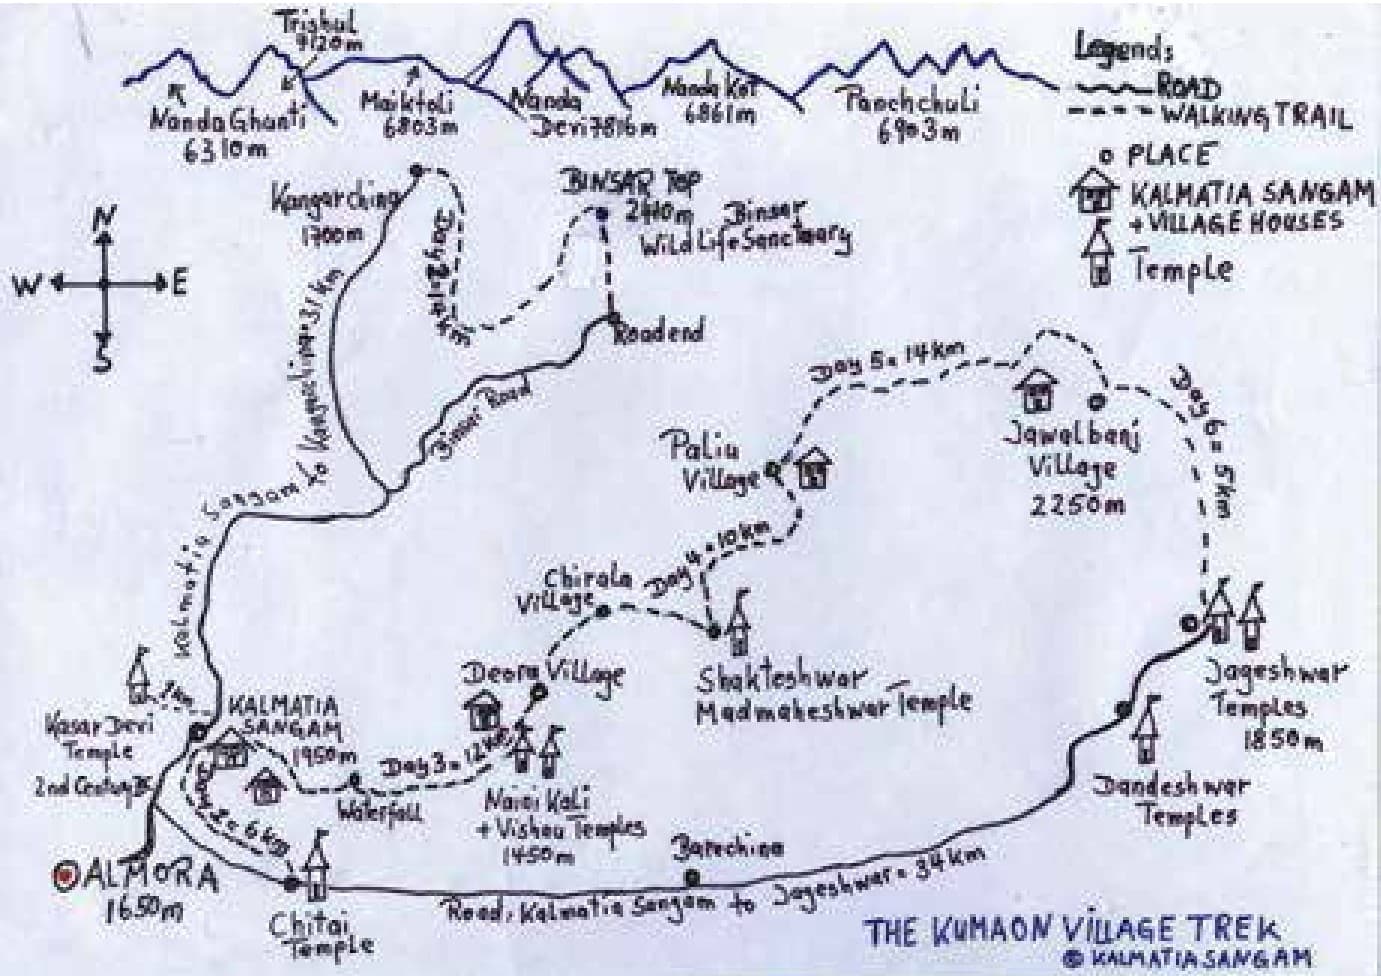 Trishul
7120m
Nanda Ghunti
6310m
Maiktoli
6803m
Nanda
Devi 7816m
Nanda Kot
6861m
Panchchuli
6903m
Legends
ROAD
WALKING TRAIL
PLACE
KALMATIA SANGAM
+ VILLAGE HOUSES
Temple
N
W
E
S
Kangarching
1700m
BINSAR TOP
2410m Binsar
Wild Life Sanctuary
Roadend
Binsar Road
Kalmatia Sangam to Kangarching = 31 km
Day 5 = 14 km
Day 6 = 5km
Paliu
Village
Jawalbanj
Village
2250m
Day 4 = 10km
Chirala
Village
Deora Village
Shakteshwar
Madmaheshwar Temple
Jageshwar
Temples
1850m
Dandeshwar
Temples
Kasar Devi
Temple
2nd Century
1km
KALMATIA
SANGAM
1950m
Waterfall
Day 3 = 12km
+ Vishnu Temples
1450m
6km
ALMORA
1650m
Chitai
Temple
Barechina
Road: Kalmatia Sangam to Jageshwar = 34km
THE KUMAON VILLAGE TREK
© KALMATIA SANGAM